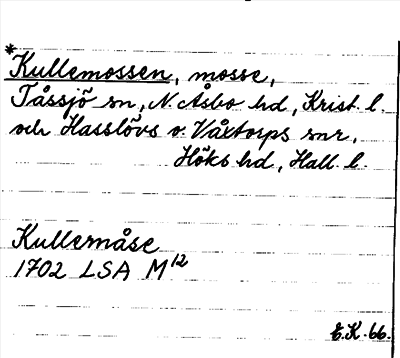 *
Kullemossen, mosse,
Tåssjö sn, N. Åsbo hd, Krist. l.
och Hasslövs o. Våxtorps snr,
Höks hd, Hall. l.
Kullemåse
1702 LSA M12
E.K. 66.